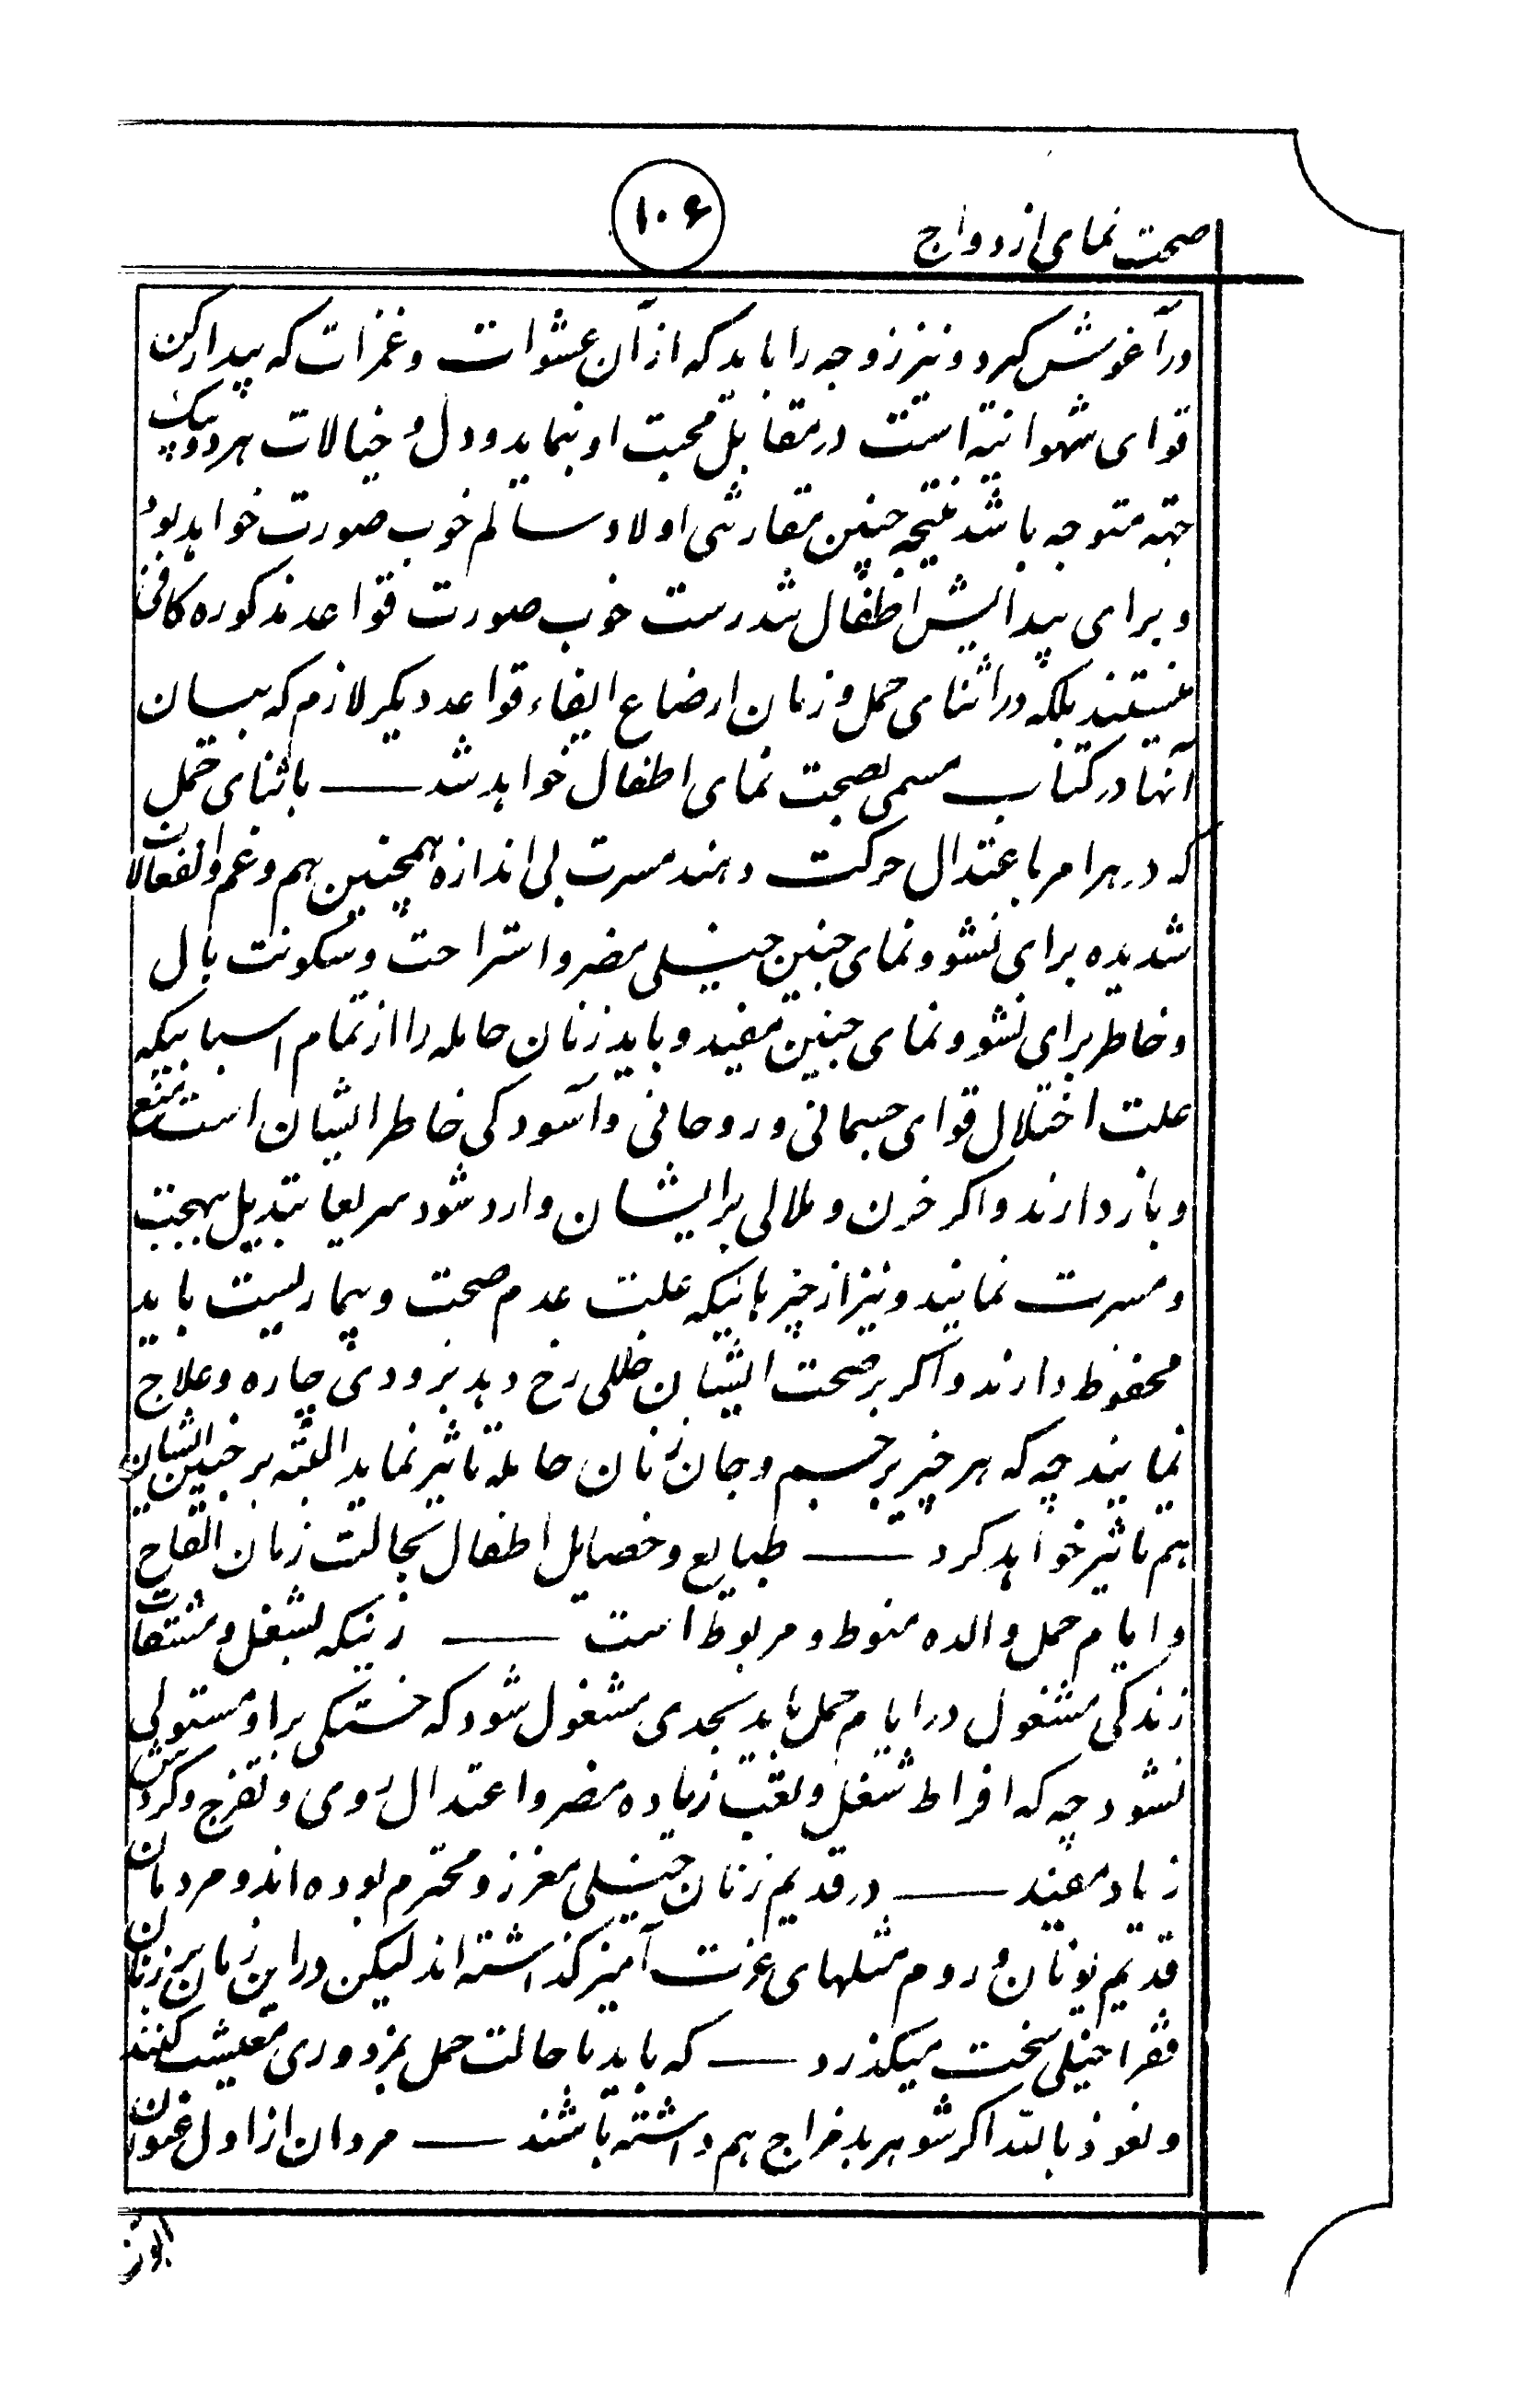 صحت نمای ازدواج
۱۰۶
در آغوش گیرد و نیز زوجه را باید که از آن عشوات و غمزات که بیدار کن
قوای شهوانیّه است در مقابل محبت او بنماید و دل و خیالات هر دو بیک
جهته متوجه باشد نتیجه چنین مقارنتی اولاد سالم خوب صورت خواهد بود
و برای پیدایش اطفال تندرست خوب صورت قواعد مذکوره کافی
نیستند بلکه در اثنای حمل و زمان ارضاع ایفاء قواعد دیگر لازم که بیان
آنها در کتاب مسمی بصحت نمای اطفال خواهد شد — باثنای حمل
که در هر امر باعتدال حرکت دهند مسرت بی اندازه همچنین هم و غم و انفعالات
شدیده برای نشو و نمای جنین خیلی مضر و استراحت و سکونت بال
و خاطر برای نشو و نمای جنین مفید و باید زنان حامله را از تمام اسبابیکه
علت اختلال قوای جسمانی و روحانی و آسودگی خاطر ایشان است منع
و باز دارند و اگر حزن و ملالی بر ایشان وارد شود سریعا تبدیل ببهجت
و مسرت نمایند و نیز از چیزهائیکه علت عدم صحت و بیماریست باید
محفوظ دارند و اگر بر صحت ایشان خللی رخ دهد بزودی چاره و علاج
نمایند چه که هر چیز بر جسم و جان زنان حامله تاثیر نماید البته بر جنین ایشان
هم تاثیر خواهد کرد — طبایع و خصایل اطفال بحالت زمان القاح
و ایام حمل والده منوط و مربوط است — زنیکه بشغل و مشقات
زندگی مشغول در ایام حمل باید بحدی مشغول شود که خستگی بر او مستولی
نشود چه که افراط شغل و تعب زیاده مضر و اعتدال روی و تفرج و گردش
زیاد مفید — در قدیم زنان خیلی معزز و محترم بوده اند و مردمان
قدیم یونان و روم مثلهای عزت آمیز گذاشته اند لیکن در این زمان بر زنان
فقرا خیلی سخت میگذرد — که باید با حالت حمل بمزدوری معیشت کنند
و نعوذ بالله اگر شوهر بد مزاج هم داشته باشند — مردان از اول